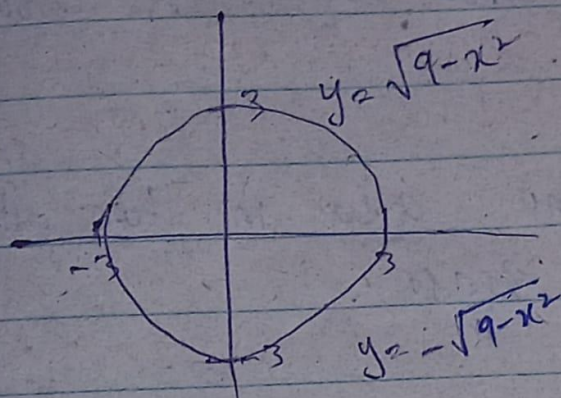 y = √9-x²
3
-3
3
-3
y = -√9-x²